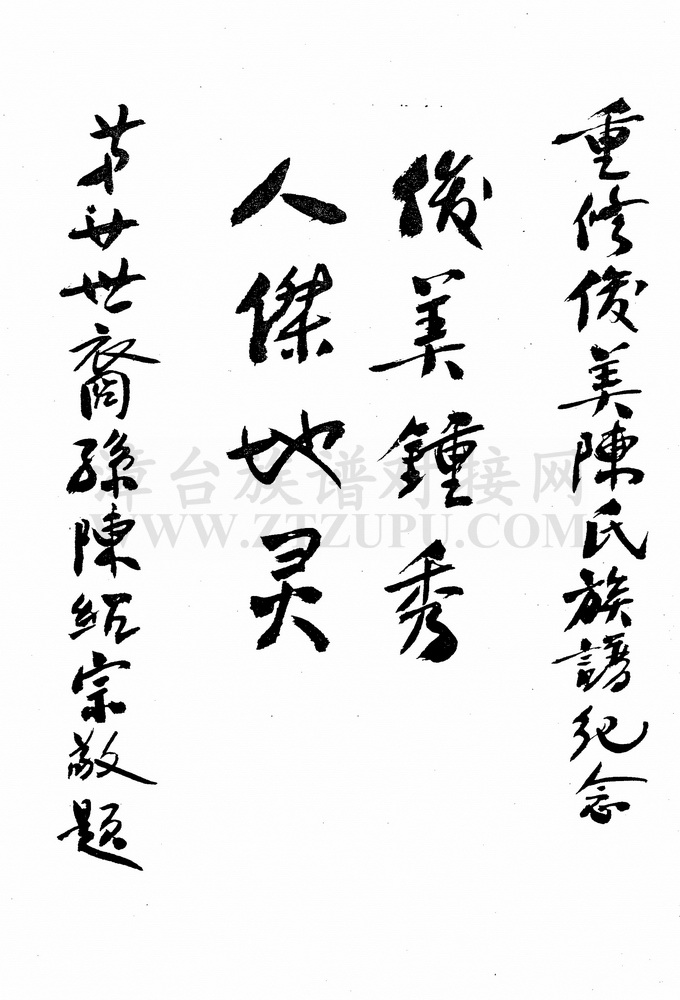 重修俊美陳氏族譜纪念
俊美鍾秀
人傑地灵
苐廿世裔孫陳紹宗敬题
章台族谱对接网
WWW.ZTZUPU.COM